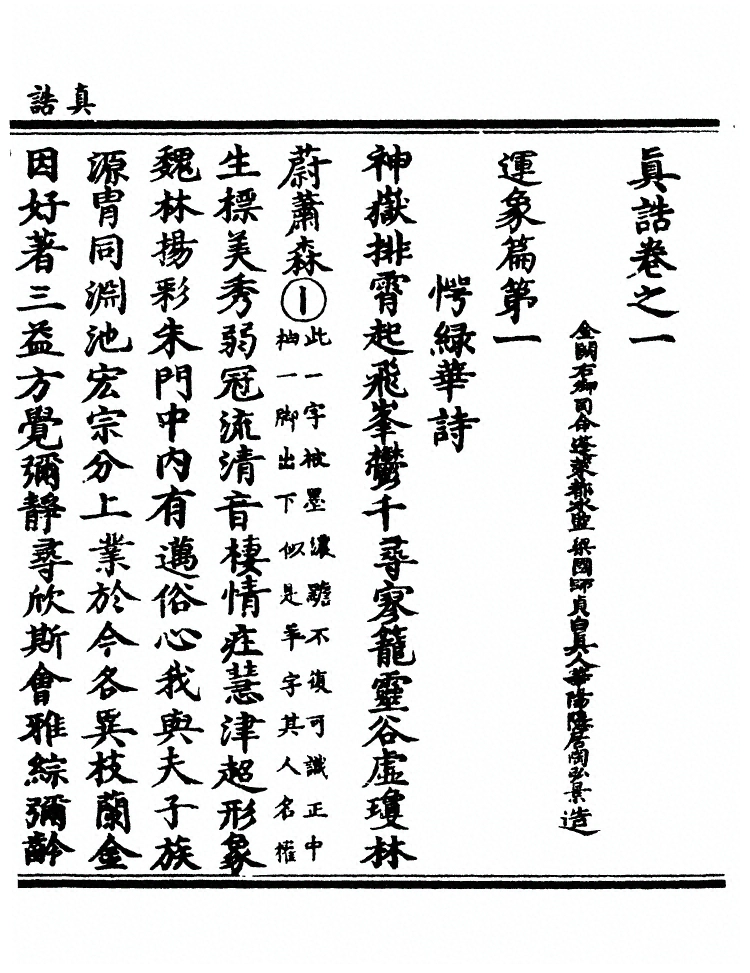 真誥
眞誥卷之一
金闕右卿司命蓬萊都水監梁國師貞白真人華陽隱居陶弘景造
運象篇第一
愕綠華詩
神嶽排霄起飛峯鬱千尋寥籠靈谷虛瓊林
蔚蕭森①此一字被墨濃黵不復可識正中
抽一脚出下似是羊字其人名權
生標美秀弱冠流清音棲情莊慧津超形象
魏林揚彩朱門中內有邁俗心我與夫子族
源胄同淵池宏宗分上業於今各異枝蘭金
因好著三益方覺彌靜尋欣斯會雅綜彌齡